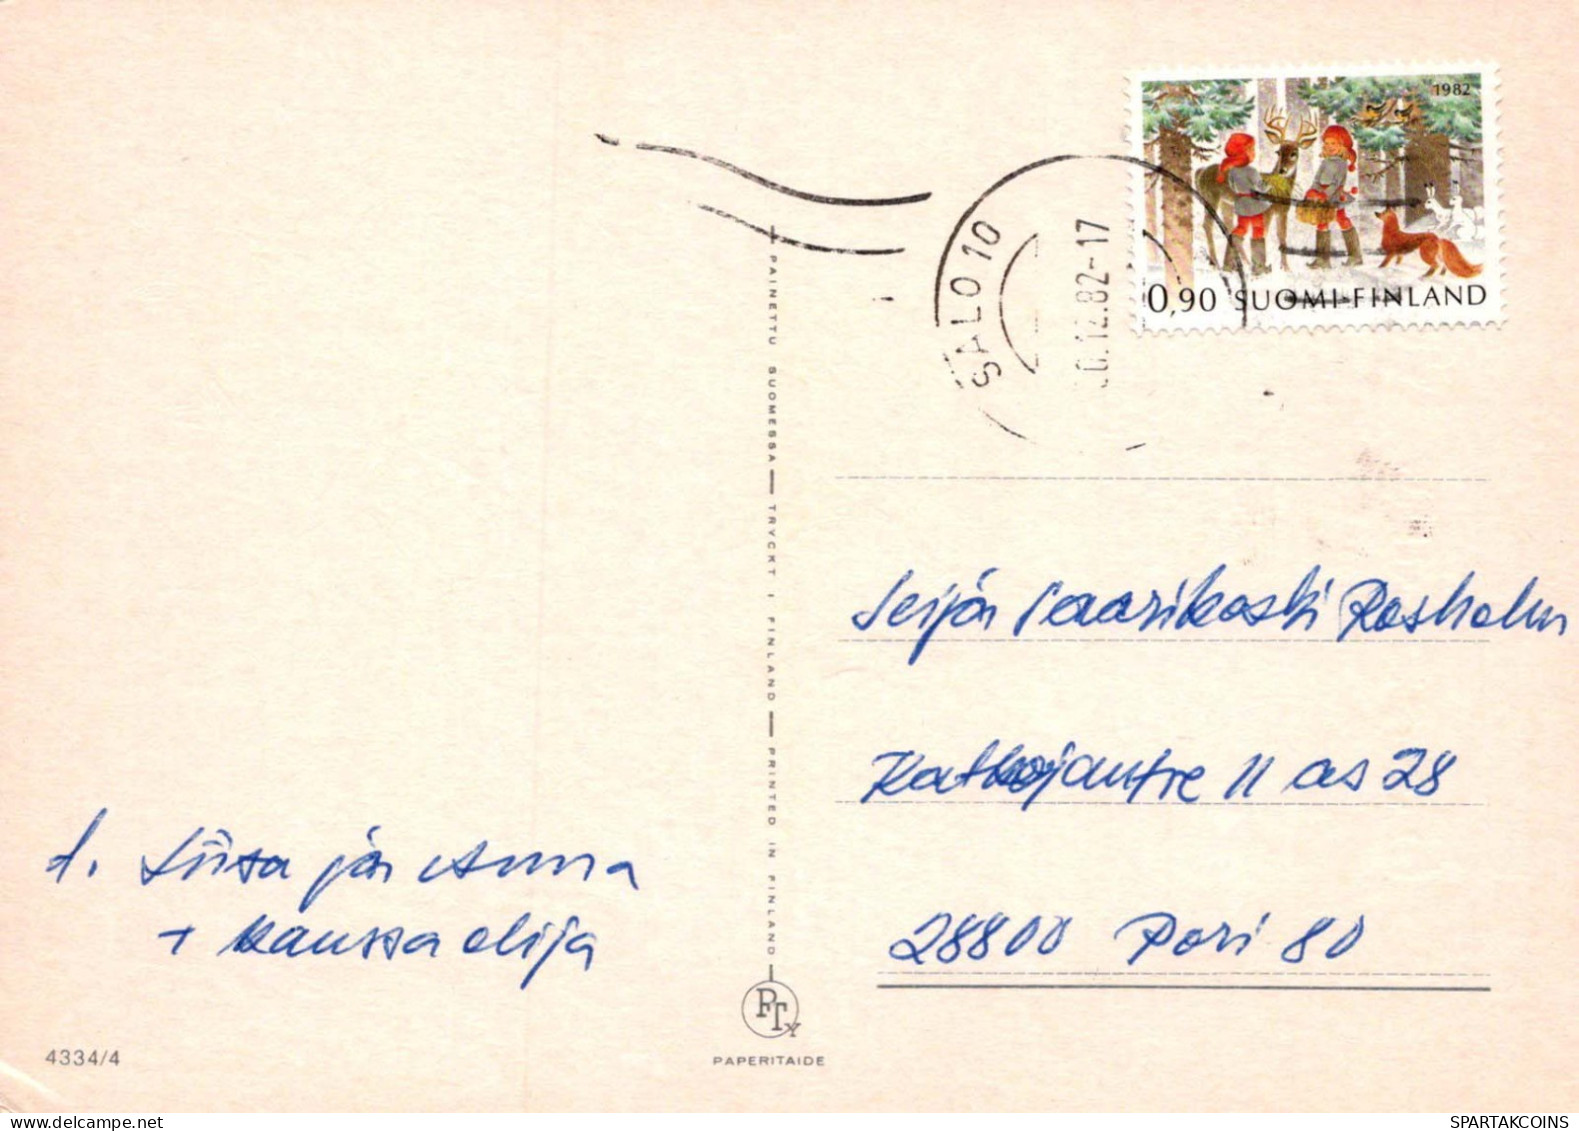 1982
0,90 SUOMI-FINLAND
SALO 10
0.12.82-17
PAINETTU SUOMESSA — TRYCKT I FINLAND — PRINTED IN FINLAND
Seija Saarikoski Rosholm
as 28
28800 Pori 80
t. Liisa ja Anna
+ kaussa olija
PTY
PAPERITAIDE
4334/4
SPARTAKCOINS